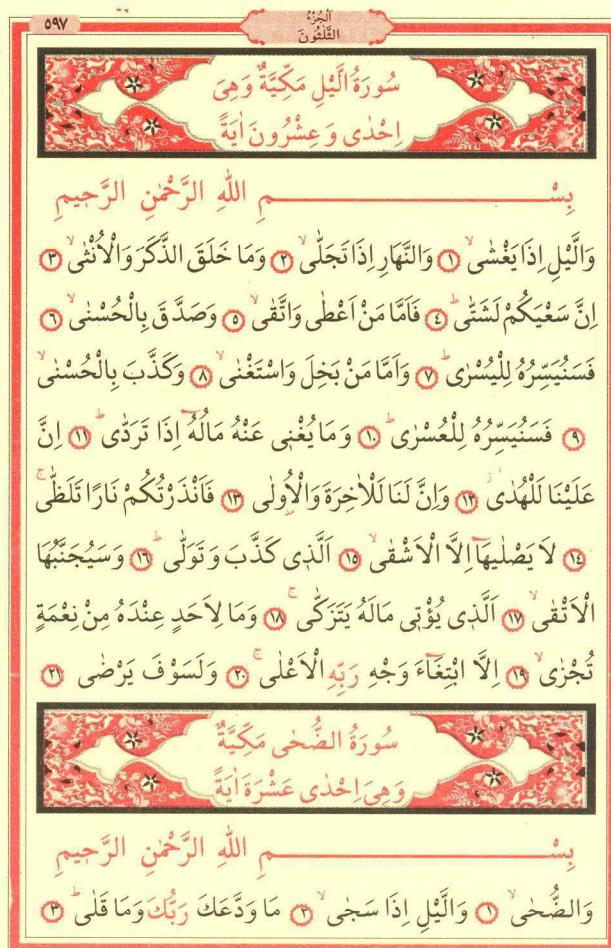 ٥٩٧
اَلْجُزْءُ
الثَّلٰثُونَ
سُورَةُ الَّيْلِ مَكِّيَّةٌ وَهِىَ
اِحْدٰى وَعِشْرُونَ اٰيَةً
بِسْــــــــــــــمِ اللهِ الرَّحْمٰنِ الرَّحِيمِ
وَالَّيْلِ اِذَا يَغْشٰىۙ ١ وَالنَّهَارِ اِذَا تَجَلّٰىۙ ٢ وَمَا خَلَقَ الذَّكَرَ وَالْاُنْثٰىۙ ٣
اِنَّ سَعْيَكُمْ لَشَتّٰىۜ ٤ فَاَمَّا مَنْ اَعْطٰى وَاتَّقٰىۙ ٥ وَصَدَّقَ بِالْحُسْنٰىۙ ٦
فَسَنُيَسِّرُهُ لِلْيُسْرٰىۜ ٧ وَاَمَّا مَنْ بَخِلَ وَاسْتَغْنٰىۙ ٨ وَكَذَّبَ بِالْحُسْنٰىۙ
٩ فَسَنُيَسِّرُهُ لِلْعُسْرٰىۜ ١٠ وَمَا يُغْنِى عَنْهُ مَالُهُٓ اِذَا تَرَدّٰىۜ ١١ اِنَّ
عَلَيْنَا لَلْهُدٰىۘ ١٢ وَاِنَّ لَنَا لَلْاٰخِرَةَ وَالْاُو۫لٰى ١٣ فَاَنْذَرْتُكُمْ نَارًا تَلَظّٰىۚ
١٤ لَا يَصْلٰيهَٓا اِلَّا الْاَشْقٰىۙ ١٥ اَلَّذِى كَذَّبَ وَتَوَلّٰىۜ ١٦ وَسَيُجَنَّبُهَا
الْاَتْقٰىۙ ١٧ اَلَّذِى يُؤْتِى مَالَهُ يَتَزَكّٰىۚ ١٨ وَمَا لِاَحَدٍ عِنْدَهُ مِنْ نِعْمَةٍ
تُجْزٰىۙ ١٩ اِلَّا ابْتِغَٓاءَ وَجْهِ رَبِّهِ الْاَعْلٰىۚ ٢٠ وَلَسَوْفَ يَرْضٰى ٢١
سُورَةُ الضُّحٰى مَكِّيَّةٌ
وَهِىَ اِحْدٰى عَشْرَةَ اٰيَةً
بِسْــــــــــــــمِ اللهِ الرَّحْمٰنِ الرَّحِيمِ
وَالضُّحٰىۙ ١ وَالَّيْلِ اِذَا سَجٰىۙ ٢ مَا وَدَّعَكَ رَبُّكَ وَمَا قَلٰىۜ ٣